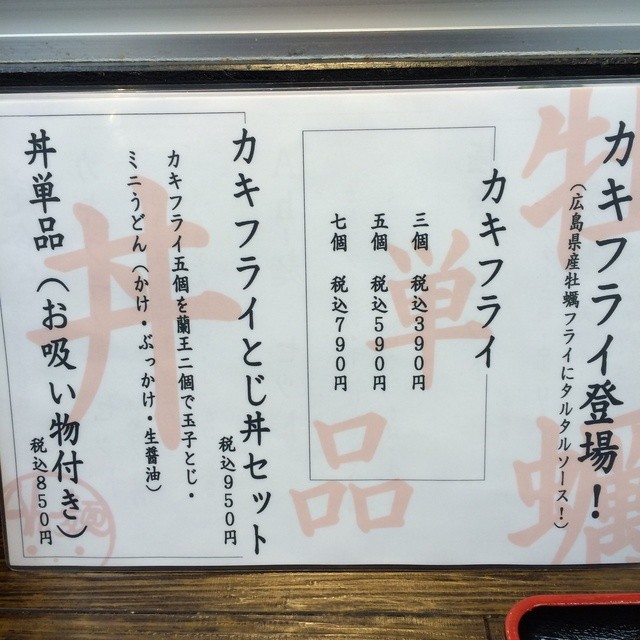 牡蠣
カキフライ登場！
（広島県産牡蠣フライにタルタルソース！）
単品
カキフライ
三個 税込390円
五個 税込590円
七個 税込790円
丼
カキフライとじ丼セット
税込950円
カキフライ五個を蘭王二個で玉子とじ・
ミニうどん（かけ・ぶっかけ・生醤油）
丼単品（お吸い物付き）
税込850円